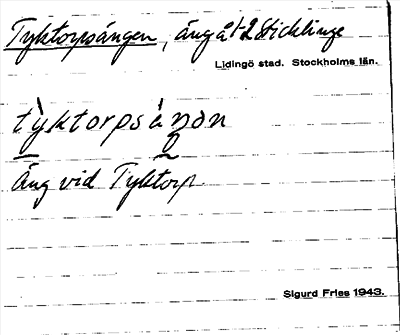 Tyktorpsängen, äng åt 2 Sticklinge
Lidingö stad. Stockholms län.
tỳktorpsàŋən
Äng vid Tyktorp
Sigurd Fries 1943.